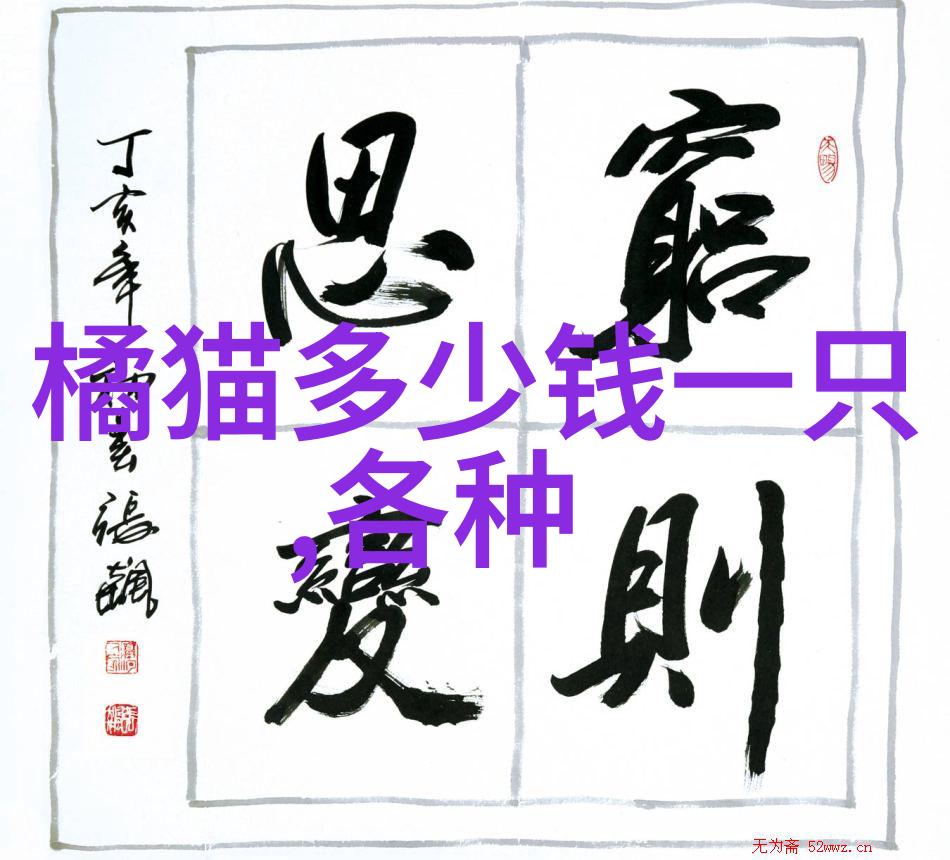 窮則
思變
丁亥年
張飆
橘猫多少钱一只
,各种
无为斋 52wwz.cn